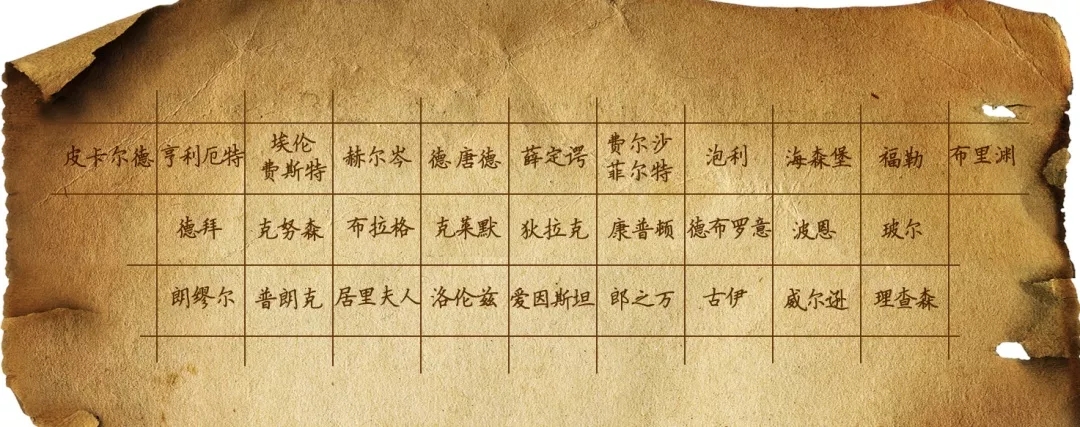 皮卡尔德 亨利厄特 埃伦费斯特 赫尔岑 德·唐德 薛定谔 费尔沙菲尔特 泡利 海森堡 福勒 布里渊
德拜 克努森 布拉格 克莱默 狄拉克 康普顿 德布罗意 波恩 玻尔
朗缪尔 普朗克 居里夫人 洛伦兹 爱因斯坦 郎之万 古伊 威尔逊 理查森